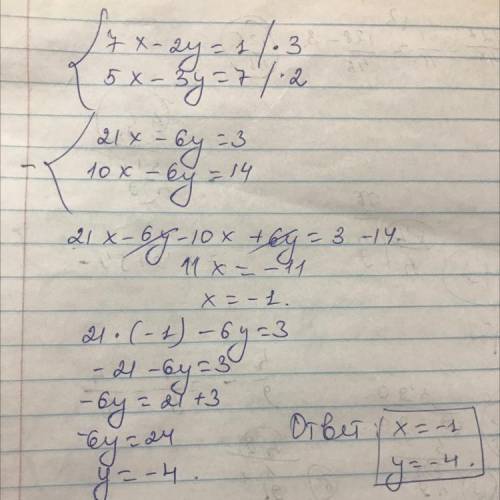 7x - 2y = 1 / · 3
5x - 3y = 7 / · 2
21x - 6y = 3
-
10x - 6y = 14
21x - 6y - 10x + 6y = 3 - 14.
11x = -11
x = -1.
21 · (-1) - 6y = 3
-21 - 6y = 3
-6y = 21 + 3
-6y = 24
y = -4.
Ответ: x = -1
y = -4.